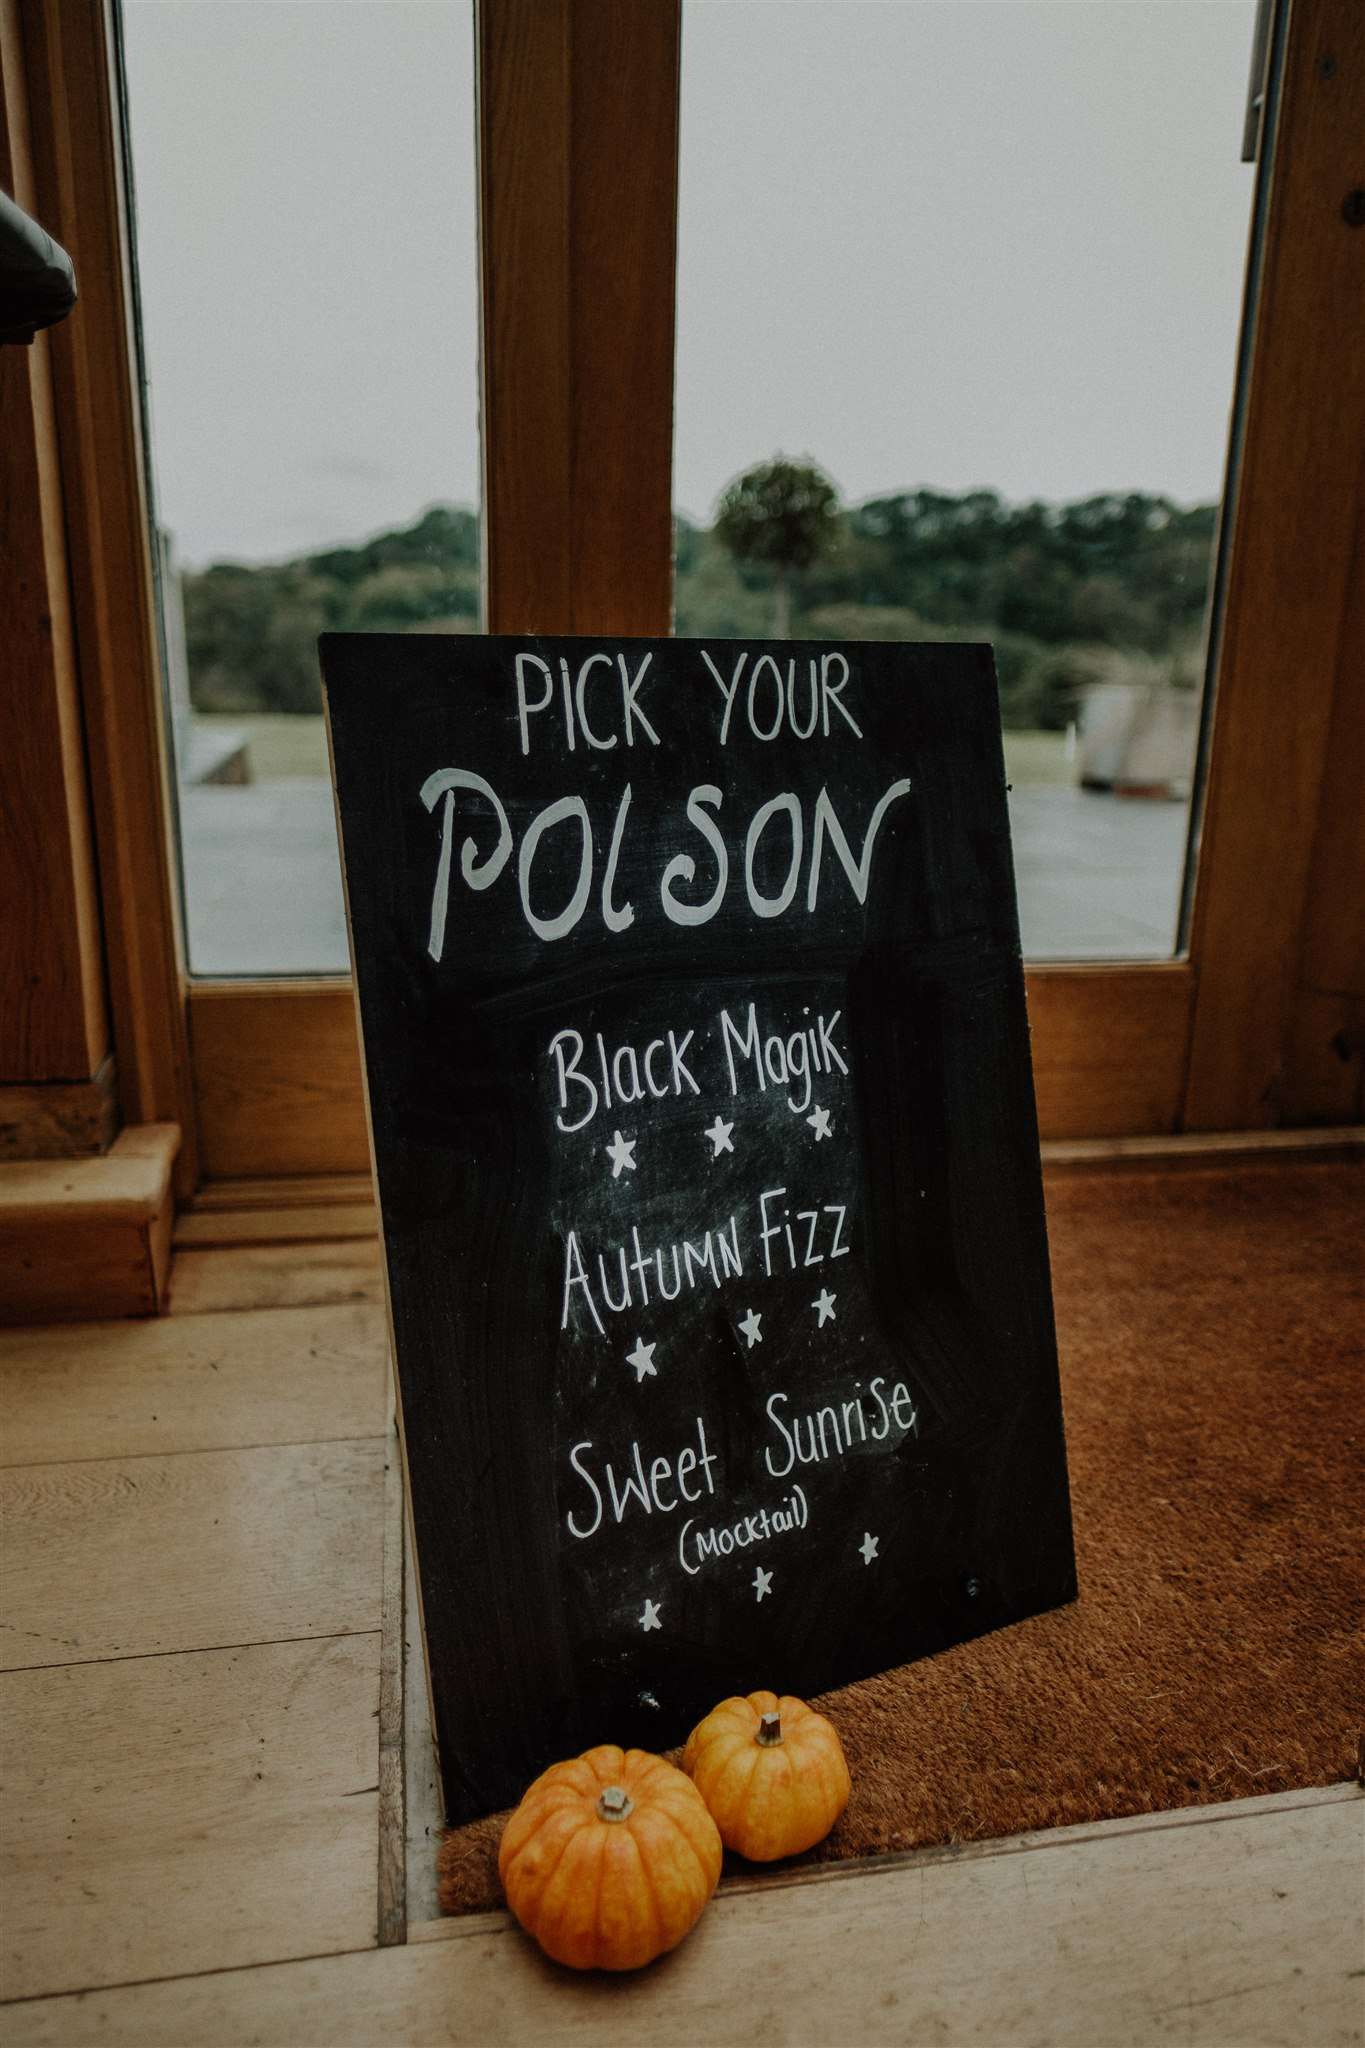 PICK YOUR
POISON
Black Magik
Autumn Fizz
Sweet Sunrise
(Mocktail)